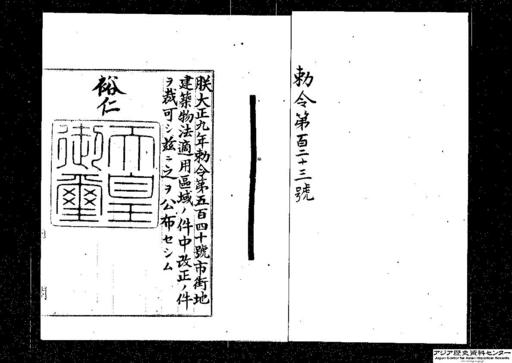 勅令第百二十三號
朕大正九年勅令第五百四十號市街地
建築物法適用區域ノ件中改正ノ件
ヲ裁可シ茲ニ之ヲ公布セシム
裕仁
天皇
御璽
アジア歴史資料センター
Japan Center for Asian Historical Records